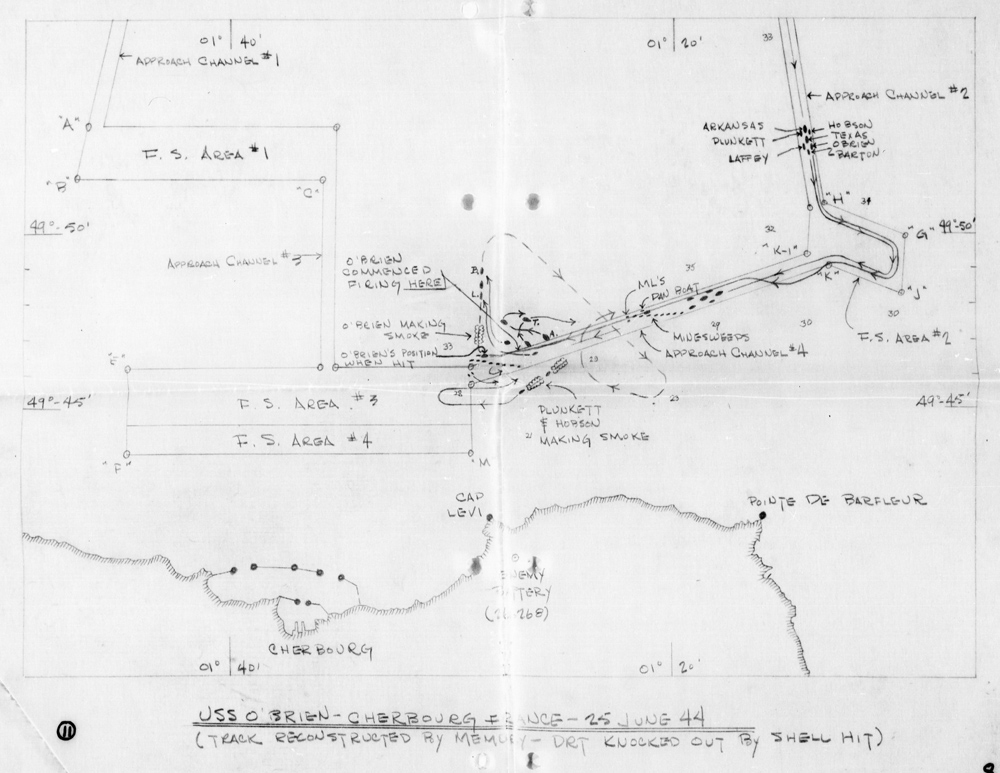 01° 40'
01° 20'
33
← APPROACH CHANNEL #1
← APPROACH CHANNEL #2
"A"
ARKANSAS
PLUNKETT
LAFFEY
HOBSON
TEXAS
O'BRIEN
BARTON
F. S. AREA #1
"B"
"C"
"H"
34
49°-50'
"G" 49°-50'
32
"K-1"
APPROACH CHANNEL #3 →
O'BRIEN
COMMENCED
FIRING HERE
B.
L.
T.
A.
35
"K"
"J"
ML'S
DAN BOAT
O'BRIEN MAKING
SMOKE
33
MINESWEEPS
29
30
30
F. S. AREA #2
O'BRIEN'S POSITION
WHEN HIT
APPROACH CHANNEL #4
"E"
49°-45'
F. S. AREA #3
49°-45'
PLUNKETT
& HOBSON
21 MAKING SMOKE
F. S. AREA #4
"F"
"M
CAP
LEVI
POINTE DE BARFLEUR
ENEMY
BATTERY
CHERBOURG
01° 40'
01° 20'
USS O'BRIEN - CHERBOURG FRANCE - 25 JUNE 44
(TRACK RECONSTRUCTED BY MEMORY - DRT KNOCKED OUT BY SHELL HIT)
11